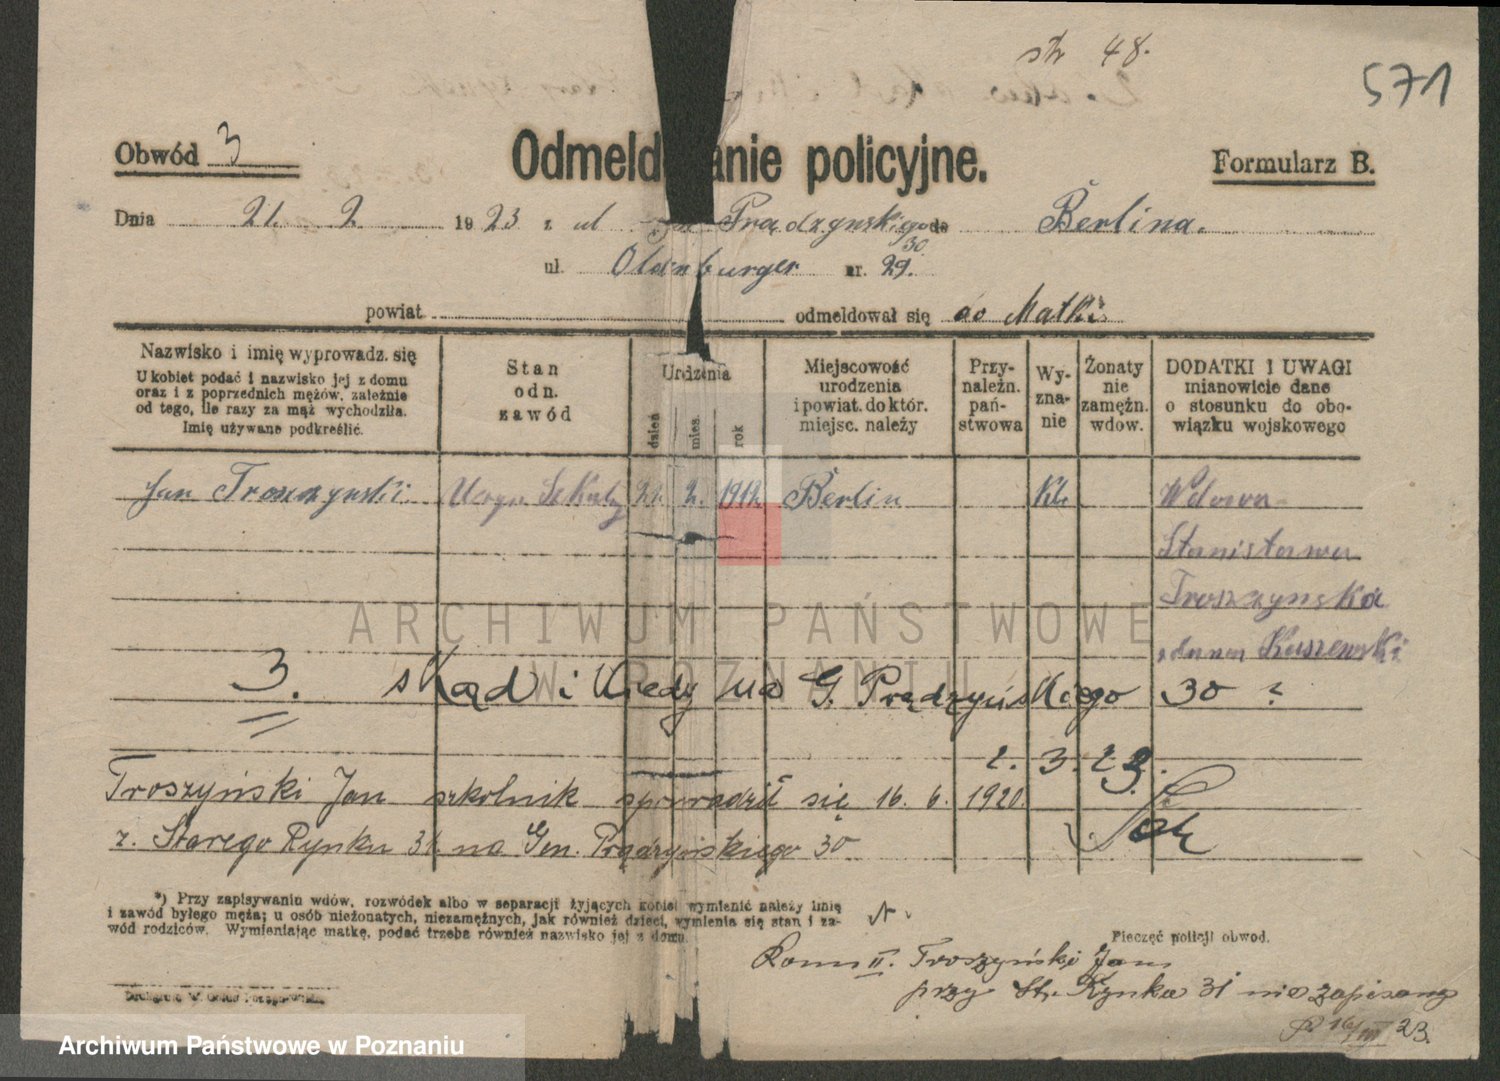 str 48.
571
Obwód 3
Odmeld anie policyjne.
Formularz B.
Dnia 21. 2. 1923 z ul Prądzynskiego 30 do Berlina.
ul. Oldenburger nr. 29.
powiat odmeldował się do Matki
Nazwisko i imię wyprowadz. się
U kobiet podać i nazwisko jej z domu
oraz i z poprzednich mężów, zależnie
od tego, ile razy za mąż wychodziła.
Imię używane podkreślić.
Stan
odn.
zawód
Urdzenia
dzień
mies.
rok
Miejscowość
urodzenia
i powiat. do któr.
miejsc. należy
Przy-
należn.
pań-
stwowa
Wy-
zna-
nie
Żonaty
nie
zamężn.
wdow.
DODATKI I UWAGI
mianowicie dane
o stosunku do obo-
wiązku wojskowego
Jan Troszzynski. Uczyn Szkoly 21. 2. 1912 Berlin Kt. Wdowa
Stanisława
Troszzynska
Kaszewski
3. skąd i kiedy na G. Prądzyńskiego 30 ?
2. 3. 23.
Troszyński Jan szkolnik sprowadził się 16. 6. 1920
z Starego Rynku 31. na Gen. Prądzyńskiego 30
*) Przy zapisywaniu wdów, rozwódek albo w separacji żyjących kobiet wymienić należy imię
i zawód byłego męża; u osób nieżonatych, niezamężnych, jak również dzieci, wymienia się stan i za-
wód rodziców. Wymieniając matkę, podać trzeba również nazwisko jej z domu.
Pieczęć policji obwod.
Kom II. Troszyński Jan
przy St. Rynku 31 nie zapisany
16/III 23.
ARCHIWUM PAŃSTWOWE
W POZNANIU
Archiwum Państwowe w Poznaniu